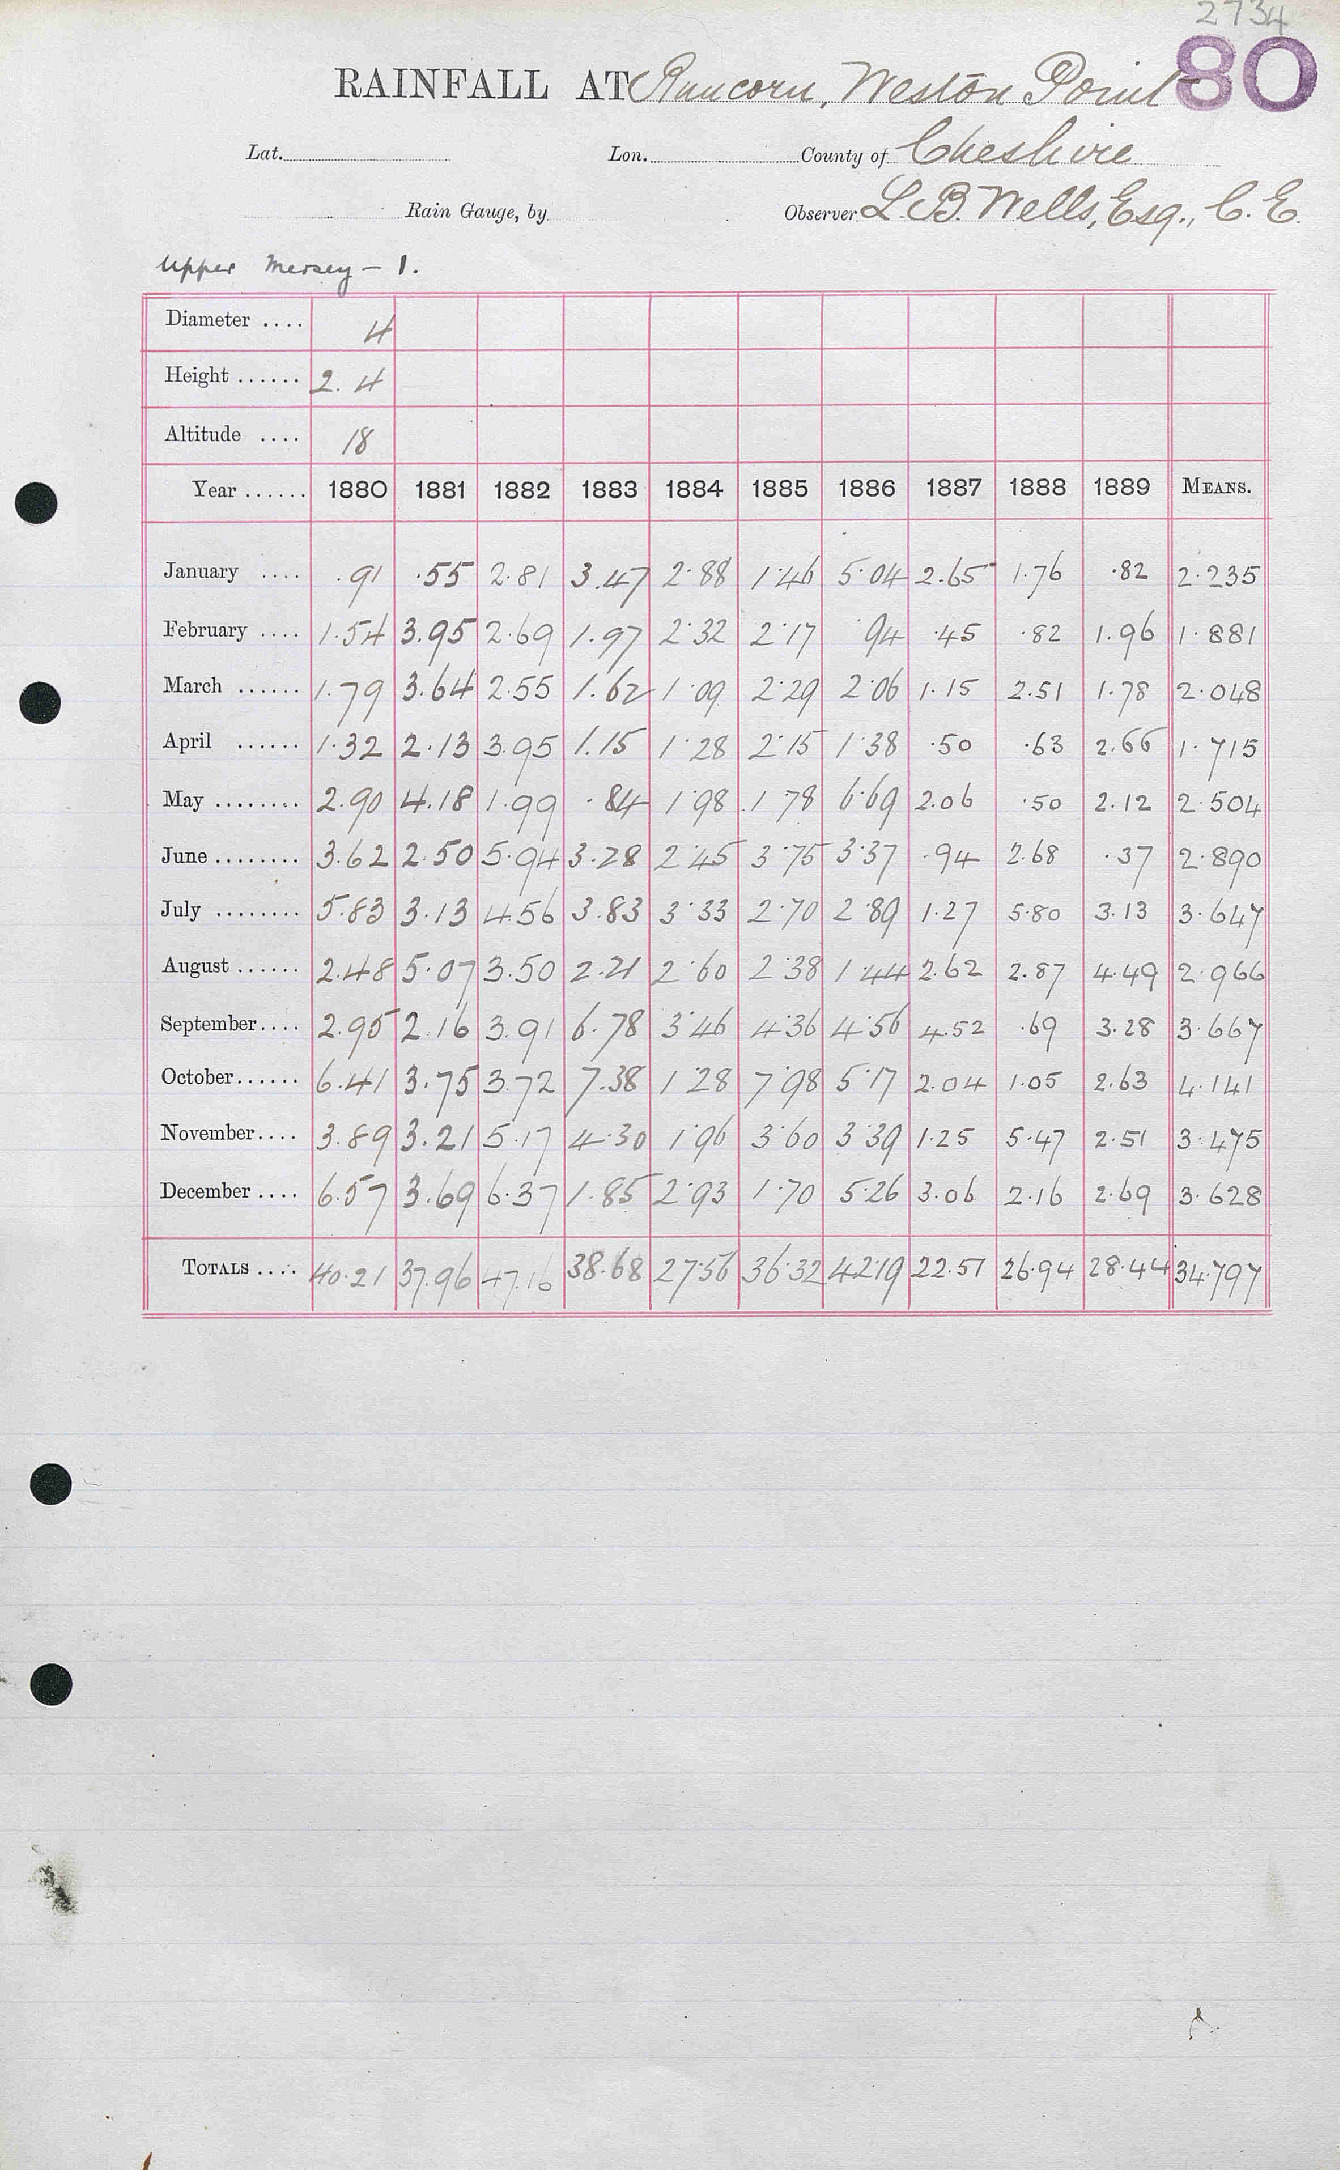 2734
80
RAINFALL AT Runcorn, Weston Point
Lat. Lon. County of Cheshire
Rain Gauge, by Observer L. B. Wells, Esq., C. E.
Upper Mersey - 1.
Diameter .... 4
Height ...... 2.4
Altitude .... 18
Year ...... 1880 1881 1882 1883 1884 1885 1886 1887 1888 1889 MEANS.
January .... .91 .55 2.81 3.47 2.88 1.46 5.04 2.65 1.76 .82 2.235
February .... 1.54 3.95 2.69 1.97 2.32 2.17 .94 .45 .82 1.96 1.881
March ...... 1.79 3.64 2.55 1.62 1.09 2.29 2.06 1.15 2.51 1.78 2.048
April ...... 1.32 2.13 3.95 1.15 1.28 2.15 1.38 .50 .63 2.66 1.715
May ........ 2.90 4.18 1.99 .84 1.98 1.78 6.69 2.06 .50 2.12 2.504
June ........ 3.62 2.50 5.94 3.28 2.45 3.75 3.37 .94 2.68 .37 2.890
July ........ 5.83 3.13 4.56 3.83 3.33 2.70 2.89 1.27 5.80 3.13 3.647
August ...... 2.48 5.07 3.50 2.21 2.60 2.38 1.44 2.62 2.87 4.49 2.966
September .... 2.95 2.16 3.91 6.78 3.46 4.36 4.56 4.52 .69 3.28 3.667
October ...... 6.41 3.75 3.72 7.38 1.28 7.98 5.17 2.04 1.05 2.63 4.141
November .... 3.89 3.21 5.17 4.30 1.96 3.60 3.39 1.25 5.47 2.51 3.475
December .... 6.57 3.69 6.37 1.85 2.93 1.70 5.26 3.06 2.16 2.69 3.628
TOTALS .... 40.21 37.96 47.16 38.68 27.56 36.32 42.19 22.51 26.94 28.44 34.797